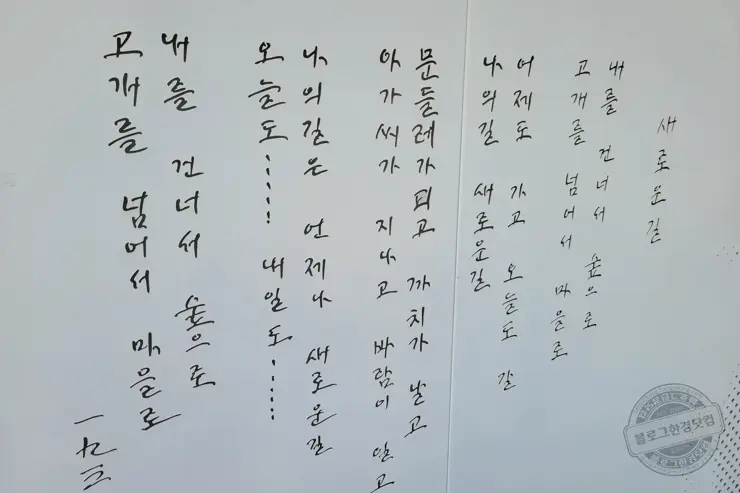 새로운길
내를 건너서 숲으로
고개를 넘어서 마을로
어제도 가고 오늘도 갈
나의길 새로운길
문들레가피고 까치가 날고
아가씨가 지나고 바람이 일고
나의길은 언제나 새로운길
오늘도…… 내일도……
내를 건너서 숲으로
고개를 넘어서 마을로
一九三
블로그한경닷컴
블로그한경닷컴